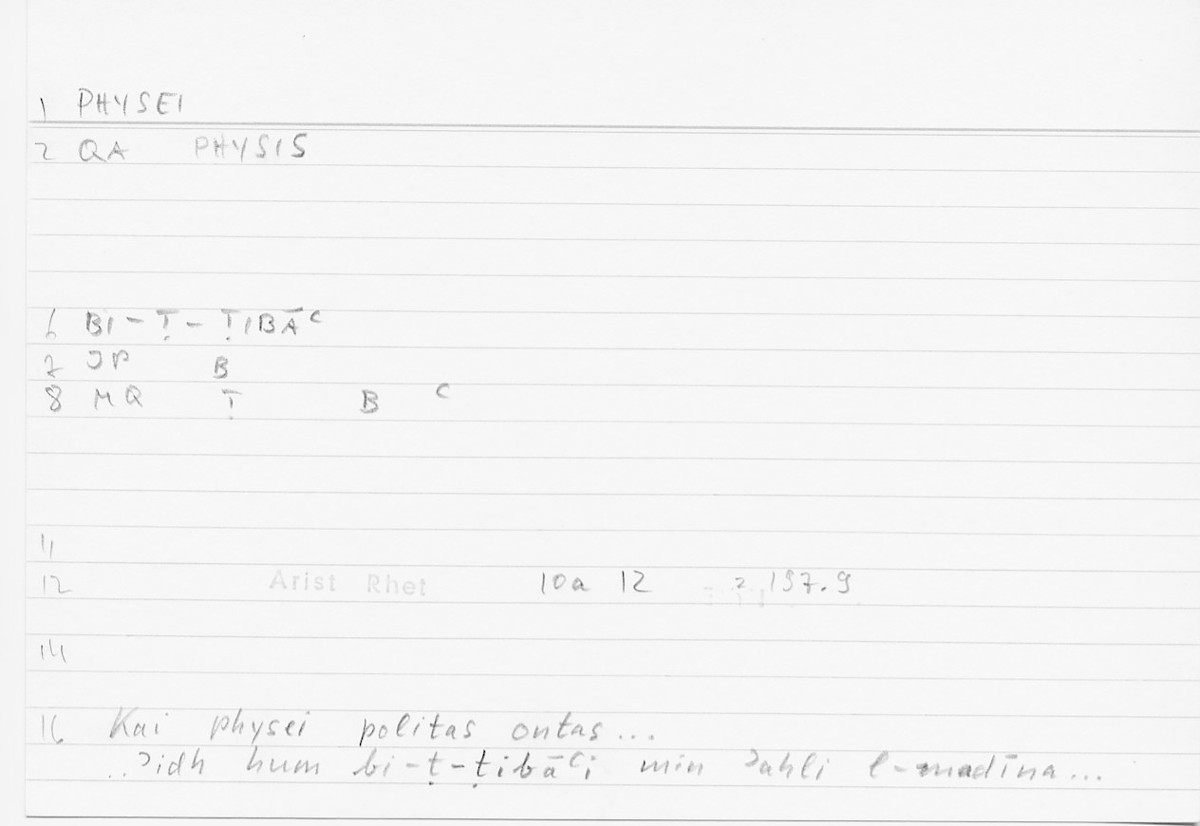 1 PHYSEI
2 QA PHYSIS
6 BI-Ṭ-ṬIBĀʿ
7 JP B
8 MQ Ṭ B ʿ
11
12 Arist Rhet 10a 12 197.9
14
16 Kai physei politas ontas...
..ʾidh hum bi-ṭ-ṭibāʿi min ʾahli l-madīna...